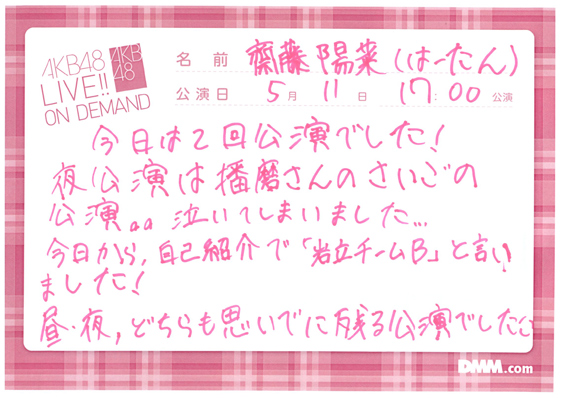 AKB48
LIVE!!
ON DEMAND
AKB
48
名前 齋藤陽菜(はーたん)
公演日 5月11日 17:00公演
今日は2回公演でした!
夜公演は播磨さんのさいごの
公演。。泣いてしまいました...
今日から,自己紹介で「岩立チームB」と言い
ました!
昼・夜,どちらも思いでに残る公演でした
DMM.com